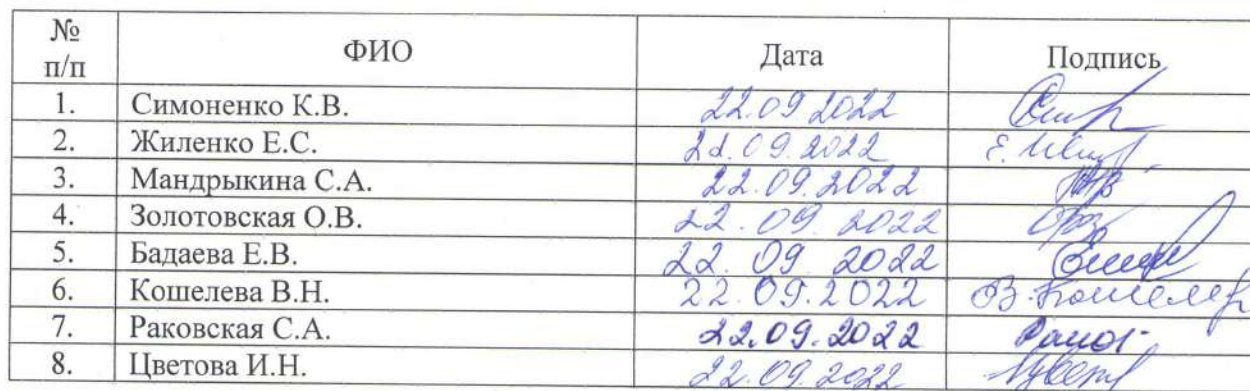 № п/п ФИО Дата Подпись
1. Симоненко К.В. 22.09.2022
2. Жиленко Е.С. 22.09.2022
3. Мандрыкина С.А. 22.09.2022
4. Золотовская О.В. 22.09.2022
5. Бадаева Е.В. 22.09.2022
6. Кошелева В.Н. 22.09.2022 В. Кошелер
7. Раковская С.А. 22.09.2022
8. Цветова И.Н. 22.09.2022